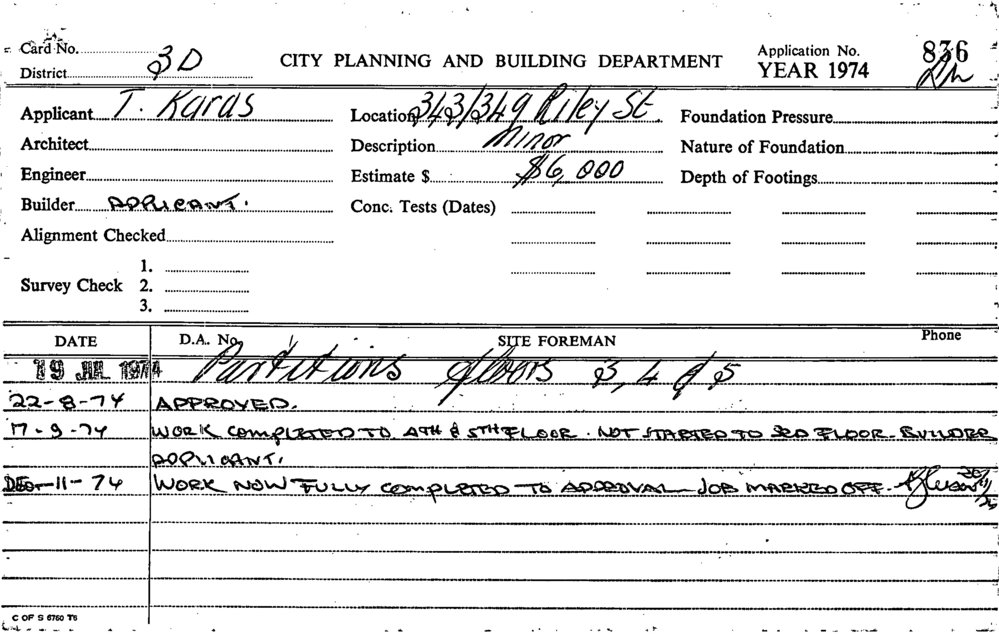 Card No.
District 3D
CITY PLANNING AND BUILDING DEPARTMENT
Application No. 836
YEAR 1974
Applicant T. Karas
Location 343/349 Riley St.
Foundation Pressure
Architect
Description Minor
Nature of Foundation
Engineer
Estimate $ $6,000
Depth of Footings
Builder APPLICANT.
Conc. Tests (Dates)
Alignment Checked
Survey Check 1.
2.
3.
DATE D.A. No. SITE FOREMAN Phone
19 JUL 1974 Partitions floors 3, 4 & 5
22-8-74 APPROVED.
17-9-74 WORK COMPLETED TO 4TH & 5TH FLOOR. NOT STARTED TO 3RD FLOOR. BUILDER
APPLICANT.
-11-74 WORK NOW FULLY COMPLETED TO APPROVAL JOB MARKED OFF.
C OF S 6750 T5